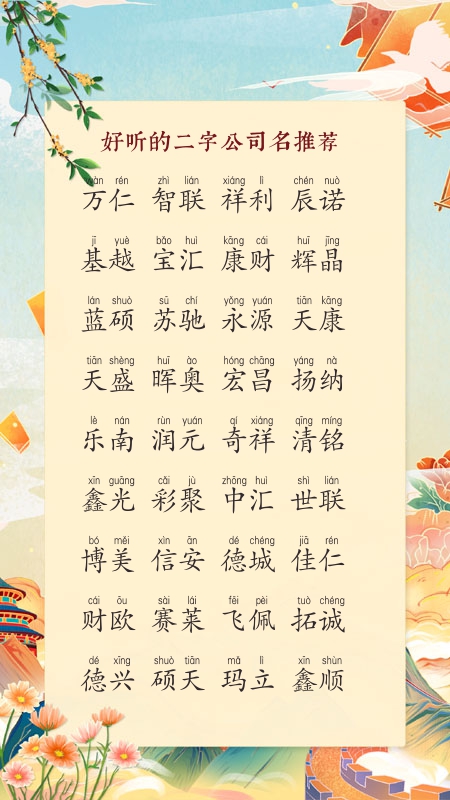 好听的二字公司名推荐
wàn rén zhì lián xiáng lì chén nuò
万仁 智联 祥利 辰诺
jī yuè bǎo huì kāng cái huī jīng
基越 宝汇 康财 辉晶
lán shuò sū chí yǒng yuán tiān kāng
蓝硕 苏驰 永源 天康
tiān shèng huī ào hóng chāng yáng nà
天盛 晖奥 宏昌 扬纳
lè nán rùn yuán qí xiáng qīng míng
乐南 润元 奇祥 清铭
xīn guāng cǎi jù zhōng huì shì lián
鑫光 彩聚 中汇 世联
bó měi xìn ān dé chéng jiā rén
博美 信安 德城 佳仁
cái ōu sài lái fēi pèi tuò chéng
财欧 赛莱 飞佩 拓诚
dé xīng shuò tiān mǎ lì xīn shùn
德兴 硕天 玛立 鑫顺